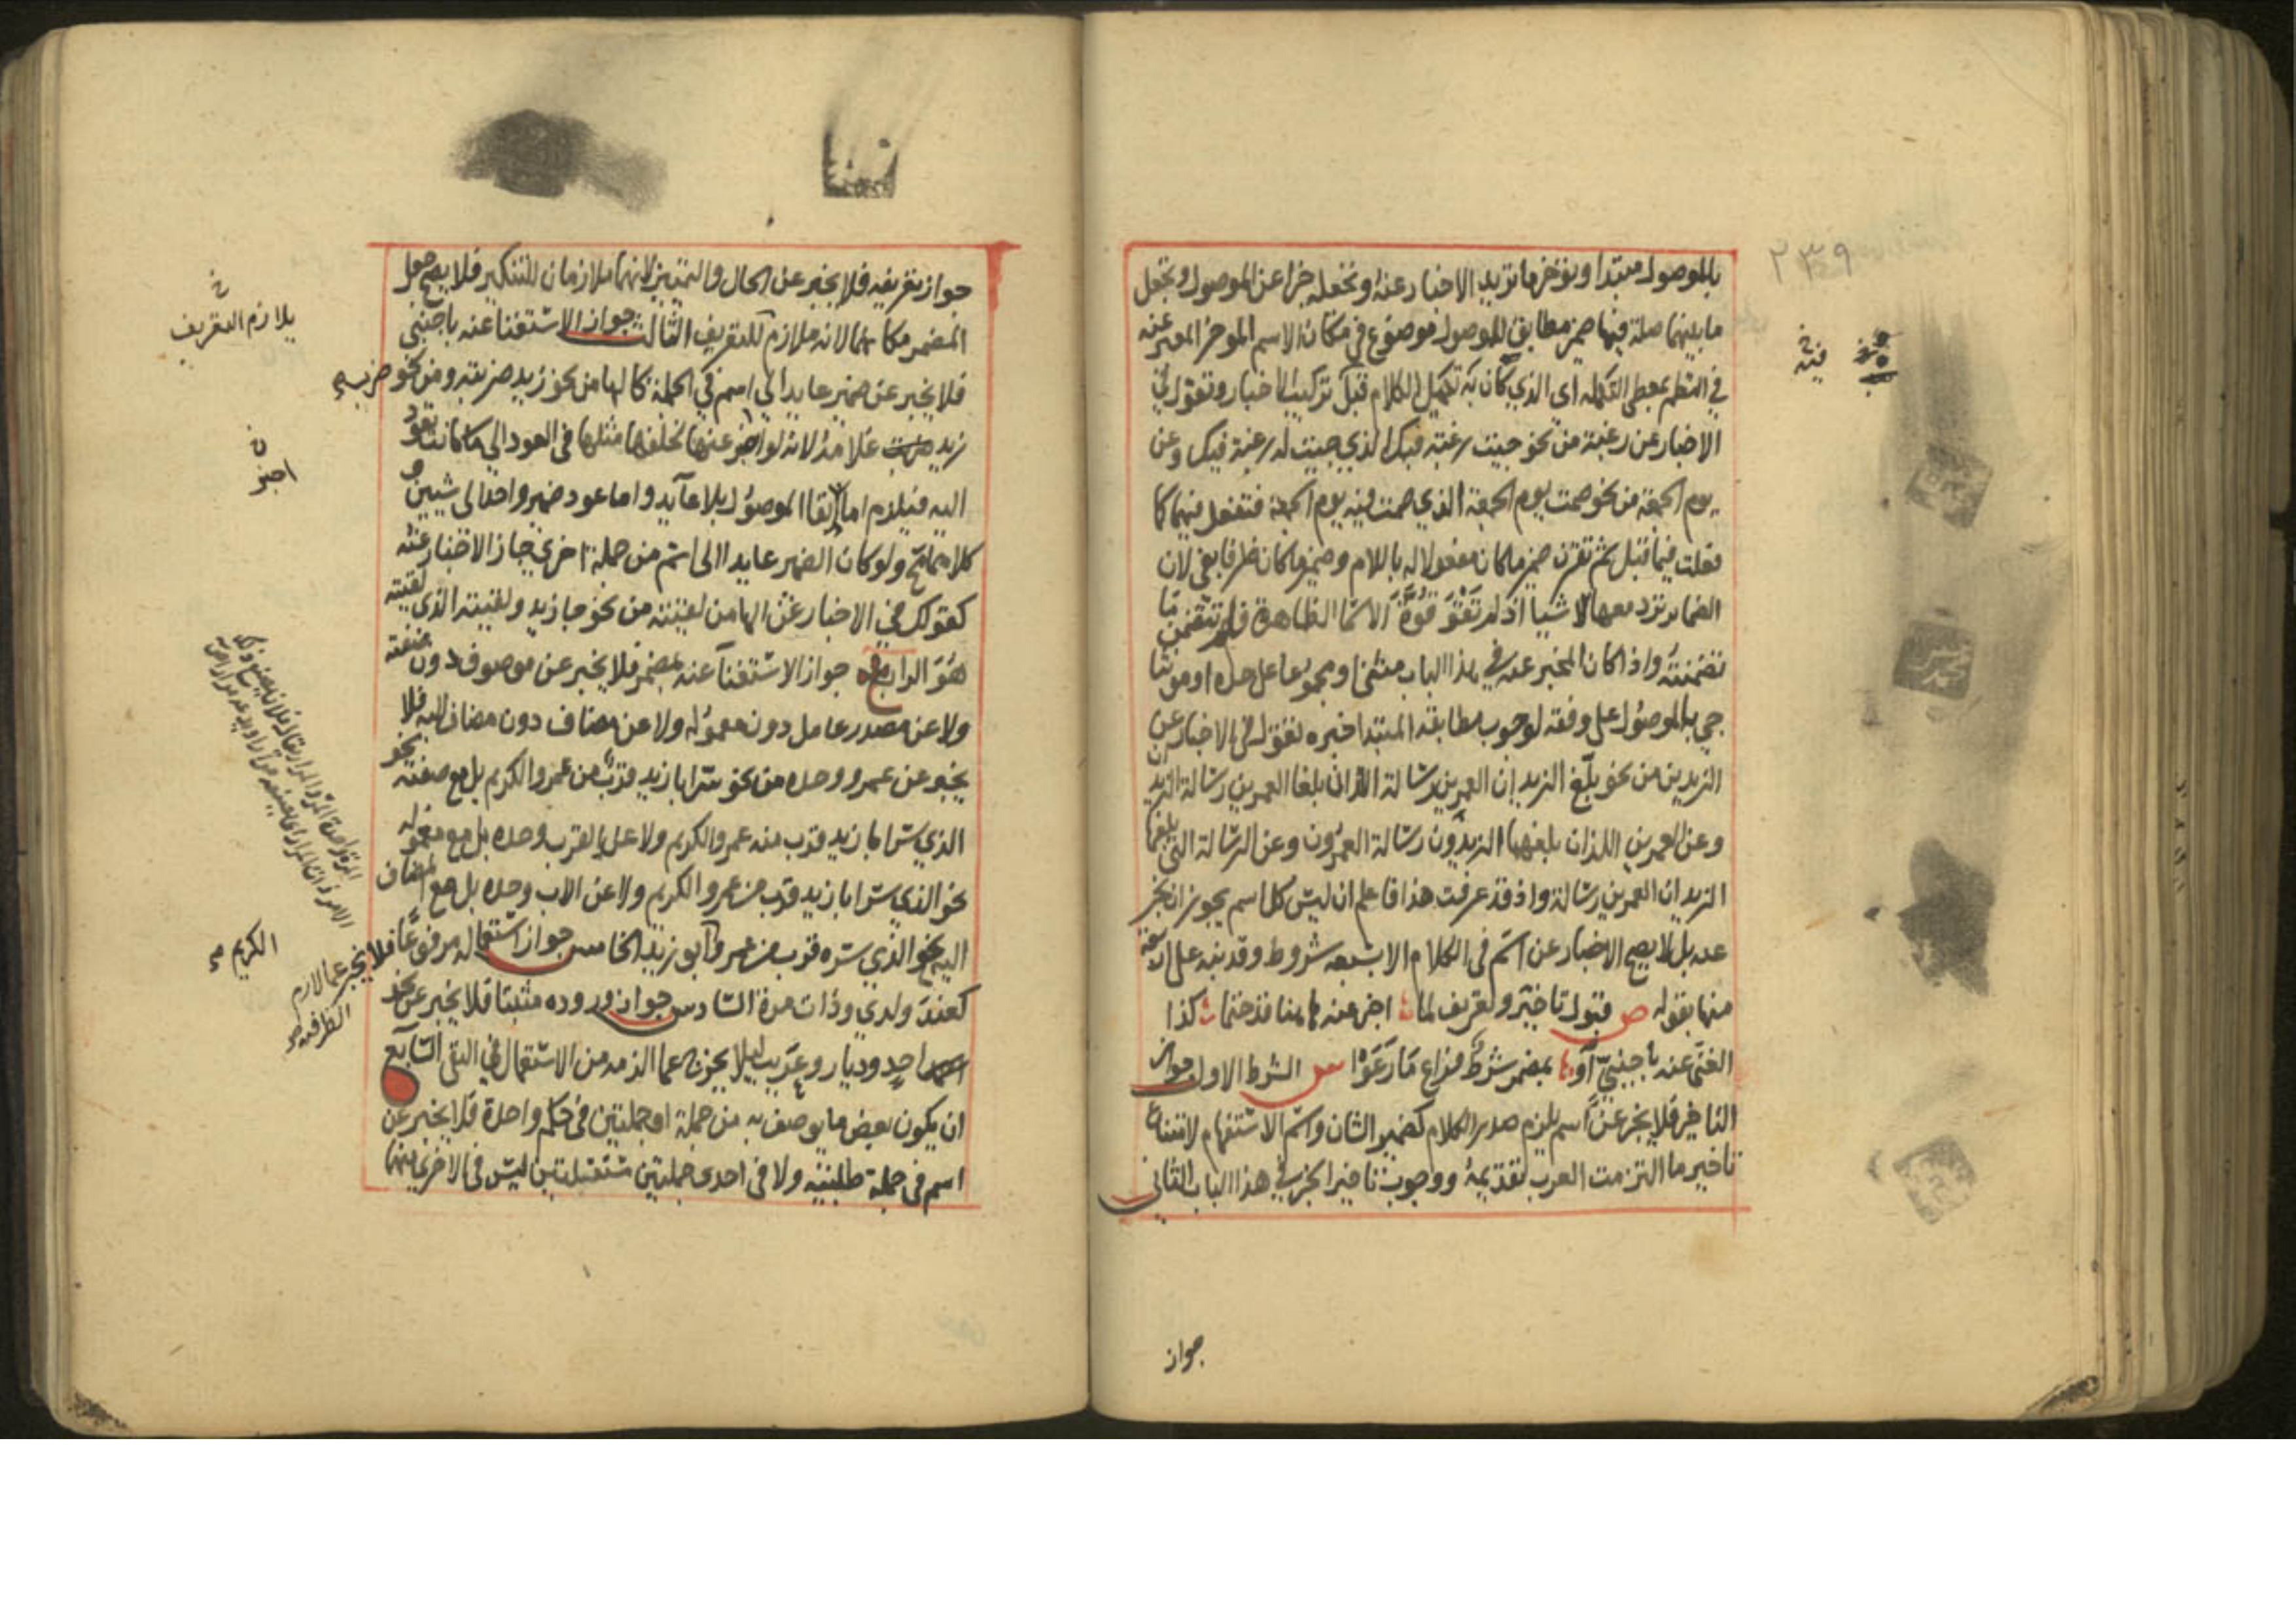 بالموصول مبتدا ويوخر ما تريد الاخبار عنه وتجعله خبرا عن الموصول وتجعل
ما بينهما صلة فيها ضمير مطابق للموصول موضوع في مكان الاسم الموخر المعبر عنه
في النظم بمعطي التكمله اي الذي كان به تكميل الكلام قبل تركيب الاخبار وتقول في
الاخبار عن رغبة من نحو جيت رغبة فيك الذي جيت له رغبة فيك وعن
يوم الجمعة من نحو صمت يوم الجمعة الذي صمت فيه يوم الجمعة فتفعل فيهما كما
فعلت فيما قبل ثم تقرن ضمير ما كان مفعولا له باللام وضمير ما كان ظرفا بفي لان
الضماير ترد معها الاشيا اذ لم تقو قوة الاسما الظاهرة فلم تتضمن ما
تضمنته واذا كان المخبر عنه في هذا الباب مثنى او مجموعا على حده او مونثا
جي بالموصول على وفقه لوجوب مطابقة المبتدا خبره فتقول في الاخبار عن
الزيدين من نحو بلغ الزيدان العمرين رسالة اللذان بلغا العمرين رسالة الزيدان
وعن العمرين اللذان بلغهما الزيدون رسالة العمرون وعن الرسالة التي بلغها
الزيدان العمرين رسالة واذ قد عرفت هذا فاعلم ان ليس كل اسم يجوز ان يخبر
عنه بل لا يصح الاخبار عن اسم في الكلام الا بسبعه شروط وقد نبه على اربعة
منها بقوله ص قبول تاخير وتعريف لما اخبر عنه هاهنا قد حتما كذا
الغنى عنه باجنبي او بمضمر شرط فراع ما رعوا ش الشرط الاول جواز
التاخير فلا يخبر عن اسم يلزم صدر الكلام كضمير الشان واسم الاستفهام لامتناع
تاخير ما التزمت العرب تقديمه ووجوب تاخير الخبر في هذا الباب الثاني
جواز
٢٣٩
فيه
جواز تعريفه فلا يخبر عن الحال والتمييز لانهما ملازمان للتنكير فلا يصح جعل
المضمر مكانهما لانه ملازم للتعريف الثالث جواز الاستغنا عنه باجنبي
فلا يخبر عن ضمير عايد الي اسم في الجملة كالها من نحو زيد ضربته ومن نحو
زيد ضرب غلامه لانه لو اخبر عنها لخلفها مثلها في العود الي ما كانت تعود
اليه فيلزم اما بقا الموصول بلا عايد واما عود ضمير واحد الى شيين و
كلاهما ولو كان الضمير عايدا الى اسم من جملة اخرى جاز الاخبار عنه
كقولك في الاخبار عن الها من لقيته من نحو جا زيد ولقيته الذي لقيته
هو الرابع جواز الاستغنا عنه بمضمر فلا يخبر عن موصوف دون صفته
ولا عن مصدر عامل دون معموله ولا عن مضاف دون مضاف اليه فلا
يخبر عن عمرو وحده من نحو سر ابا زيد قرب من عمرو الكريم بل مع صفته نحو
الذي سر ابا زيد قرب منه عمرو الكريم ولا عن القرب وحده بل مع معموله
نحو الذي سر ابا زيد قرب من عمرو الكريم ولا عن الاب وحده بل مع المضاف
اليه نحو الذي سره قرب من عمرو ابو زيد الخامس جواز استعماله مرفوعا فلا يخبر عما لازم
كعند ولدي وذات مرة السادس جواز وروده مثبتا فلا يخبر عن نحو
احد وديار وعريب ليلا يخرج عما الزمه من الاستعمال في النفي السابع
ان يكون بعض ما يوصف به من جملة او جملتين في حكم واحدة فلا يخبر عن
اسم في جملة طلبية ولا في احدى جملتين مستقلتين ليس في الاخرى منهما
يلازم التعريف
اخبر
الكريم صح
الظرفية صح